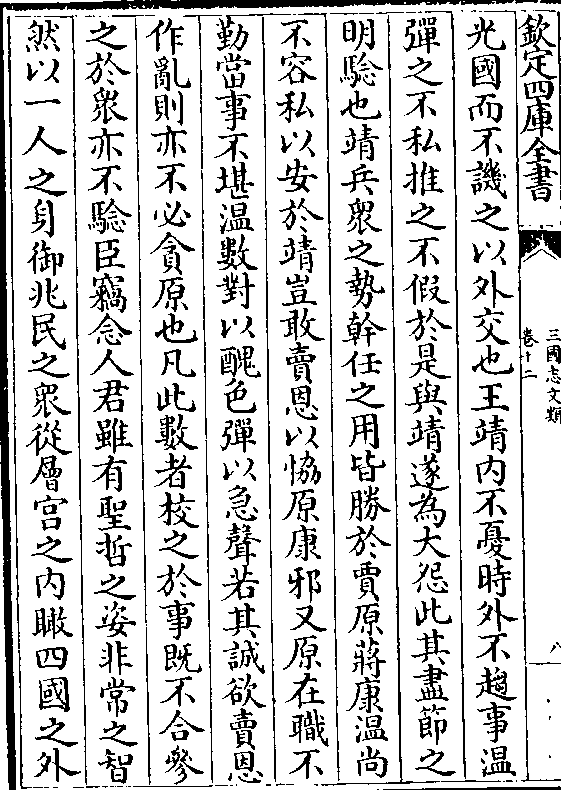 欽定四庫全書
三國志文類
卷十二
八
光國而不譏之以外交也王靖内不憂時外不趨事温
彈之不私推之不假於是與靖遂為大怨此其盡節之
明驗也靖兵衆之勢幹任之用皆勝於賈原蔣康温尚
不容私以安於靖豈敢賣恩以恊原康邪又原在職不
勤當事不堪温數對以醜色彈以急聲若其誠欲賣恩
作亂則亦不必貪原也凡此數者校之於事既不合參
之於衆亦不驗臣竊念人君雖有聖哲之姿非常之智
然以一人之身御兆民之衆從層宫之内瞰四國之外